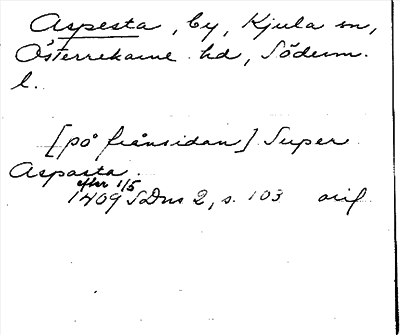 Aspesta, by, Kjula sn,
Österrekarne hd, Söderm.
l.
[på frånsidan] Super
Aspasta.
efter 1/5
1409 SDns 2, s. 103 orig.